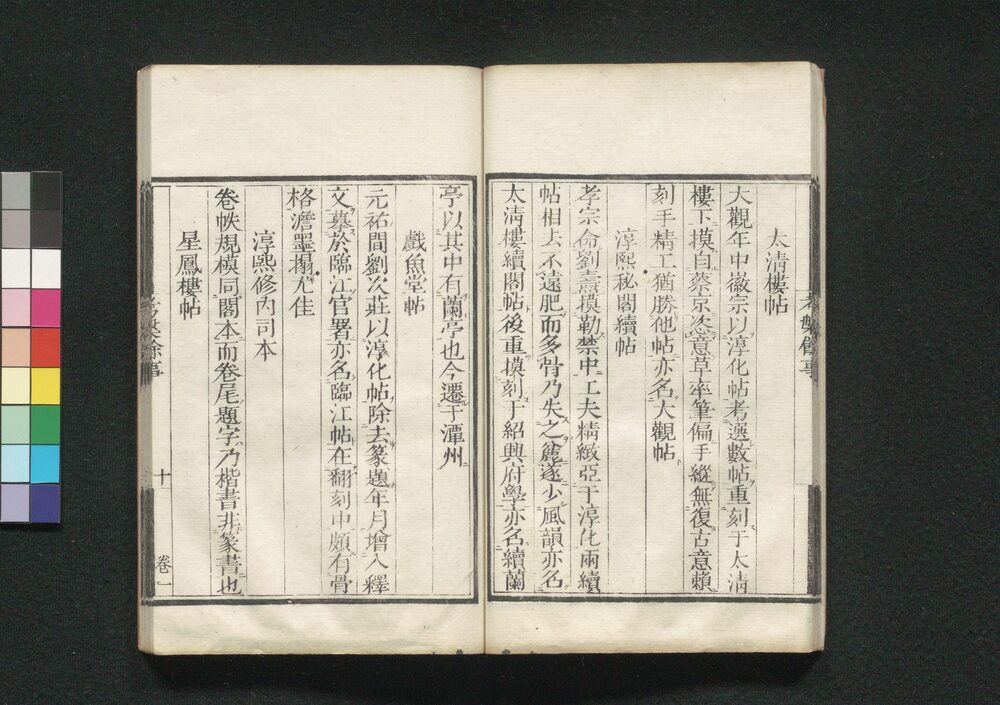 太淸樓帖
大觀年中徽宗以淳化帖考選數帖重刻于太淸
樓下摸自蔡京恣意草率筆偏手縱無復古意賴
刻手精工猶勝他帖亦名大觀帖
淳熙秘閣續帖
孝宗命劉燾摸勒禁中工夫精緻亞于淳化兩續
帖相去不遠肥而多骨乃失之麄遂少風韻亦名
太淸樓續閣帖後重摸刻于紹興府學亦名續蘭
亭以其中有蘭亭也今遷于潭州
戲魚堂帖
元祐間劉次莊以淳化帖除去篆題年月增入釋
文摹於臨江官署亦名臨江帖在翻刻中頗有骨
格澹墨搨尤佳
淳熙修內司本
卷帙規模同閣本而卷尾題字乃楷書非篆書也
星鳳樓帖
考槃餘事
十
卷一